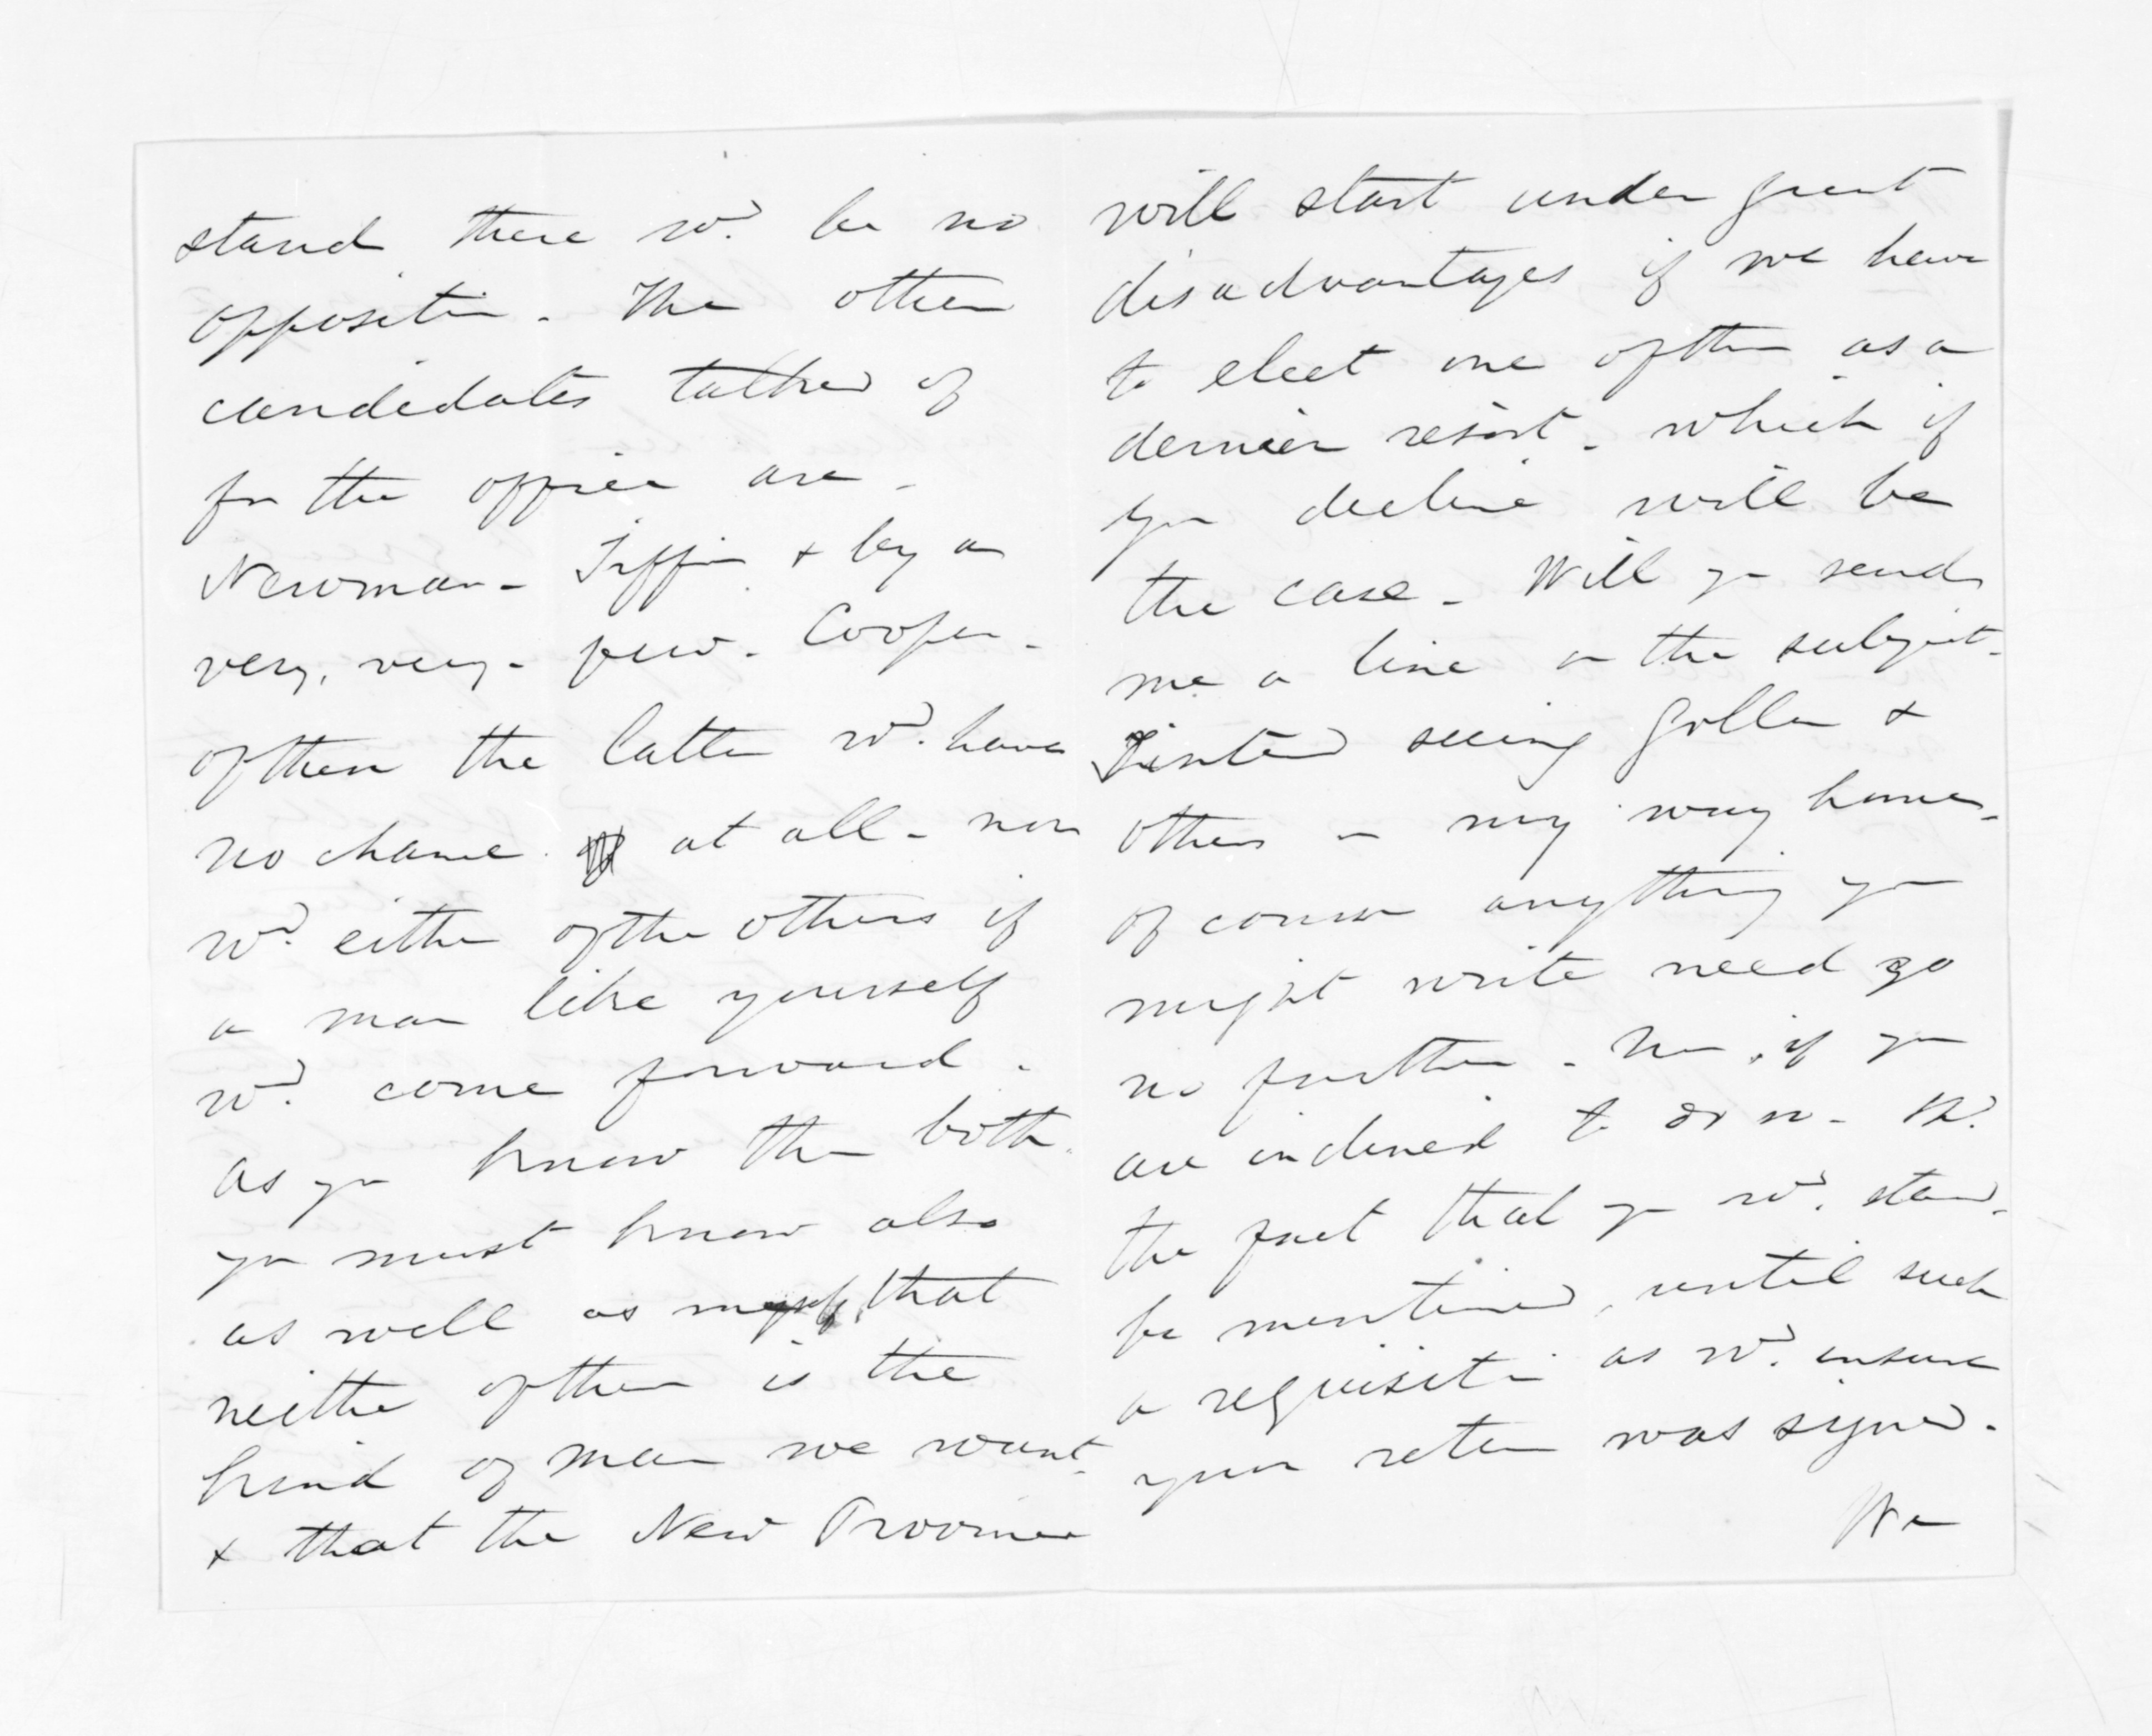 stand there wd. be no
opposition. The other
candidates talked of
for the office are -
Newman - Tiffin & by a
very, very - few - Cooper -
of them the latter wd. have
no chance at all - nor
wd. either of the others if
a man like yourself
wd. come forward.
as you know them both.
you must know also
as well as myself, that
neither of them is the
kind of man we want -
& that the New Province
will start under great
disadvantages if we have
to elect one of them as a
dernier resort - which if
you decline will be
the case - Will you send
me a line on the subject -
seeing Gollan &
others on my way home -
of course anything you
might write need go
no further - Nor, if you
are inclined to do so - wd.
the fact that you wd. stand,
be mentioned, until such
a requisition as wd. ensure
your return was signed.
We